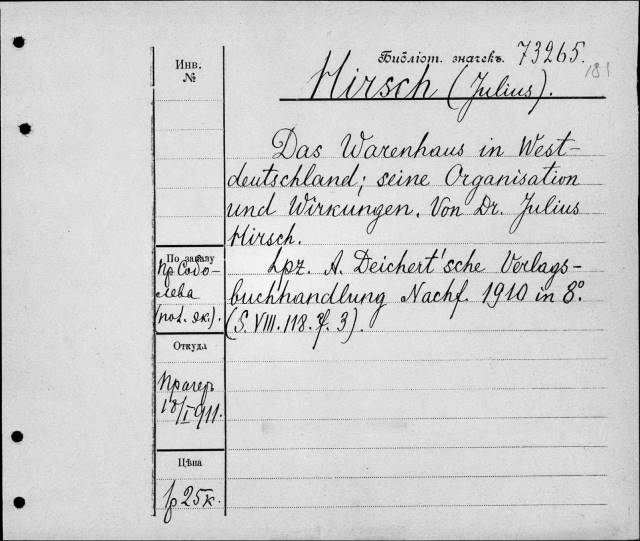 Инв.
№
Библіот. значекъ. 73265.
181
Hirsch (Julius).
Das Warenhaus in West-
deutschland; seine Organisation
und Wirkungen. Von Dr. Julius
Hirsch.
Lpz. A. Deichert'sche Verlags-
buchhandlung Nachf. 1910 in 8º.
(S. VIII. 118. 3).
По заказу
пр Собо-
лева
(пол. эк.).
Откуда
Прагеръ
18/I 911.
Цѣна
1р 25к.